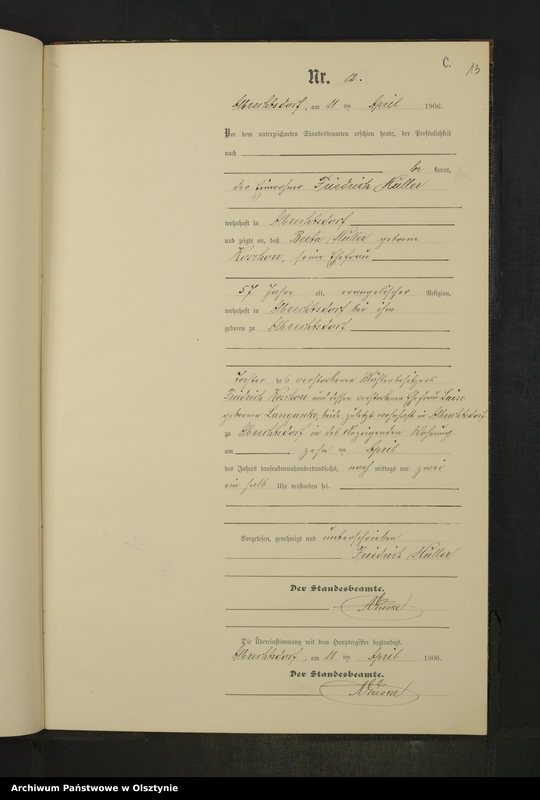 C.
13
Nr. 12.
Albrechtsdorf, am 11 ten April 1906.
Vor dem unterzeichneten Standesbeamten erschien heute, der Persönlichkeit
nach
be kannt,
der Einwohner Friedrich Müller
wohnhaft in Albrechtsdorf
und zeigte an, daß Berta Müller geborene
Koschorr, seine Ehefrau
57 Jahre alt, evangelischer Religion,
wohnhaft in Albrechtsdorf bei ihm
geboren zu Albrechtsdorf
Tochter des verstorbenen Mühlenbesitzers
Friedrich Koschorr und dessen verstorbenen Ehefrau Luise
geborene Langanke, beide zuletzt wohnhaft in Albrechtsdorf
zu Albrechtsdorf in des Anzeigenden Wohnung
am zehn ten April
des Jahres tausendneunhundertundsechs, nach mittags um zwei
ein halb Uhr verstorben sei.
Vorgelesen, genehmigt und unterschrieben
Friedrich Müller
Der Standesbeamte.
Die Übereinstimmung mit dem Hauptregister beglaubigt.
Albrechtsdorf, am 11 ten April 1906.
Der Standesbeamte.
Archiwum Państwowe w Olsztynie